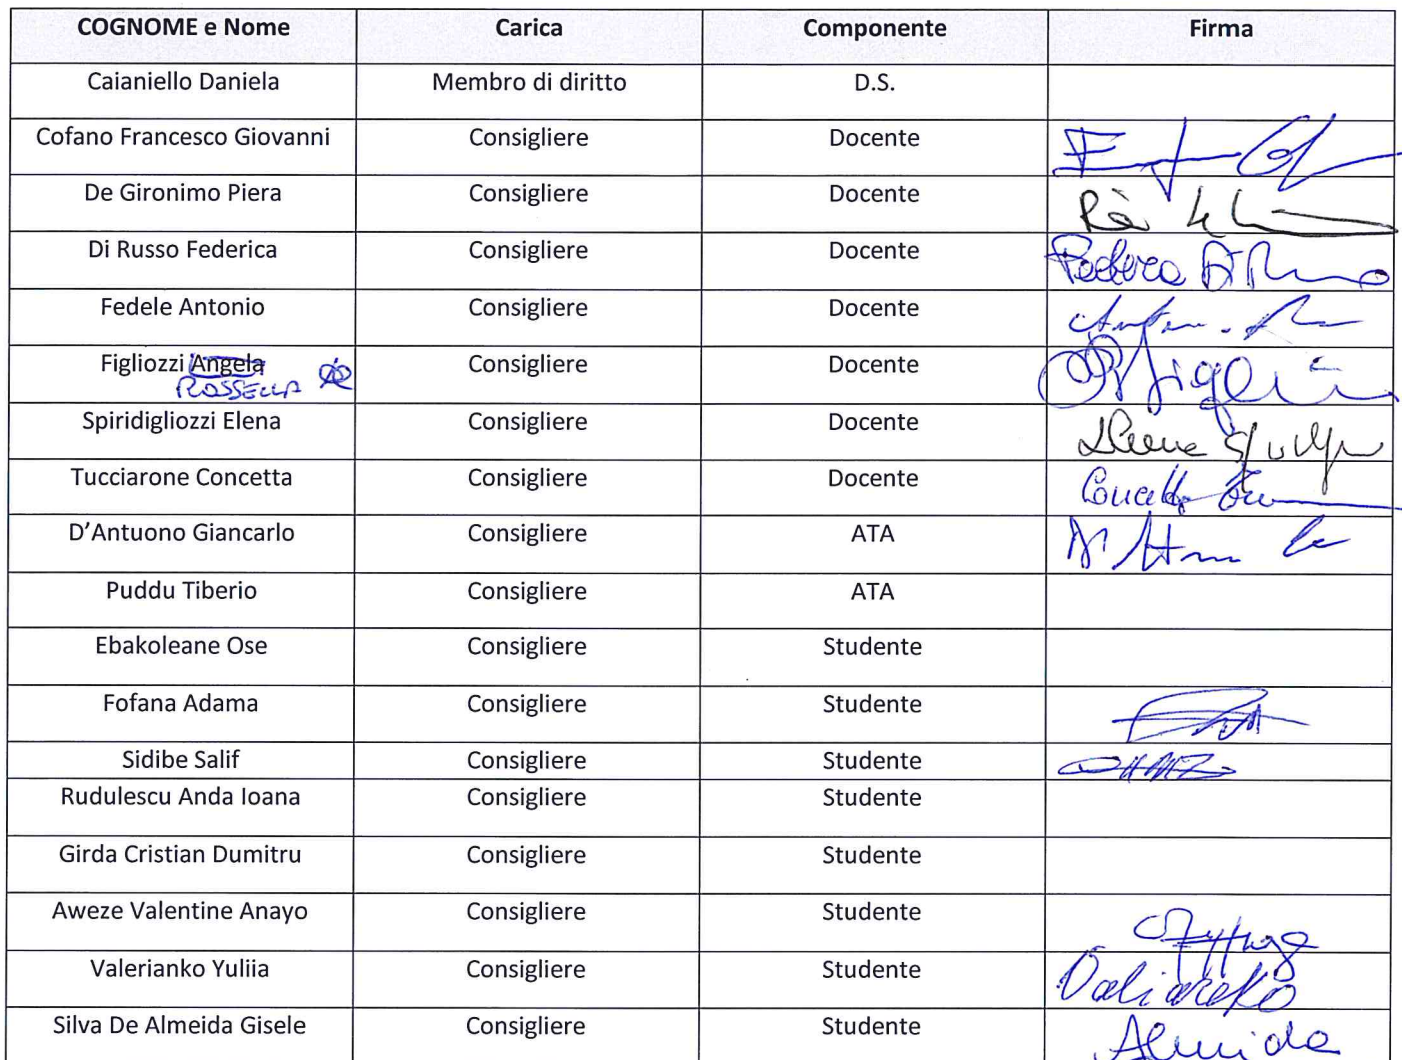 COGNOME e Nome Carica Componente Firma
Caianiello Daniela Membro di diritto D.S.
Cofano Francesco Giovanni Consigliere Docente
De Gironimo Piera Consigliere Docente
Di Russo Federica Consigliere Docente
Fedele Antonio Consigliere Docente
Figliozzi Angela Consigliere Docente
ROSSELLA
Spiridigliozzi Elena Consigliere Docente
Tucciarone Concetta Consigliere Docente
D'Antuono Giancarlo Consigliere ATA
Puddu Tiberio Consigliere ATA
Ebakoleane Ose Consigliere Studente
Fofana Adama Consigliere Studente
Sidibe Salif Consigliere Studente
Rudulescu Anda Ioana Consigliere Studente
Girda Cristian Dumitru Consigliere Studente
Aweze Valentine Anayo Consigliere Studente
Valerianko Yuliia Consigliere Studente
Silva De Almeida Gisele Consigliere Studente Almeida